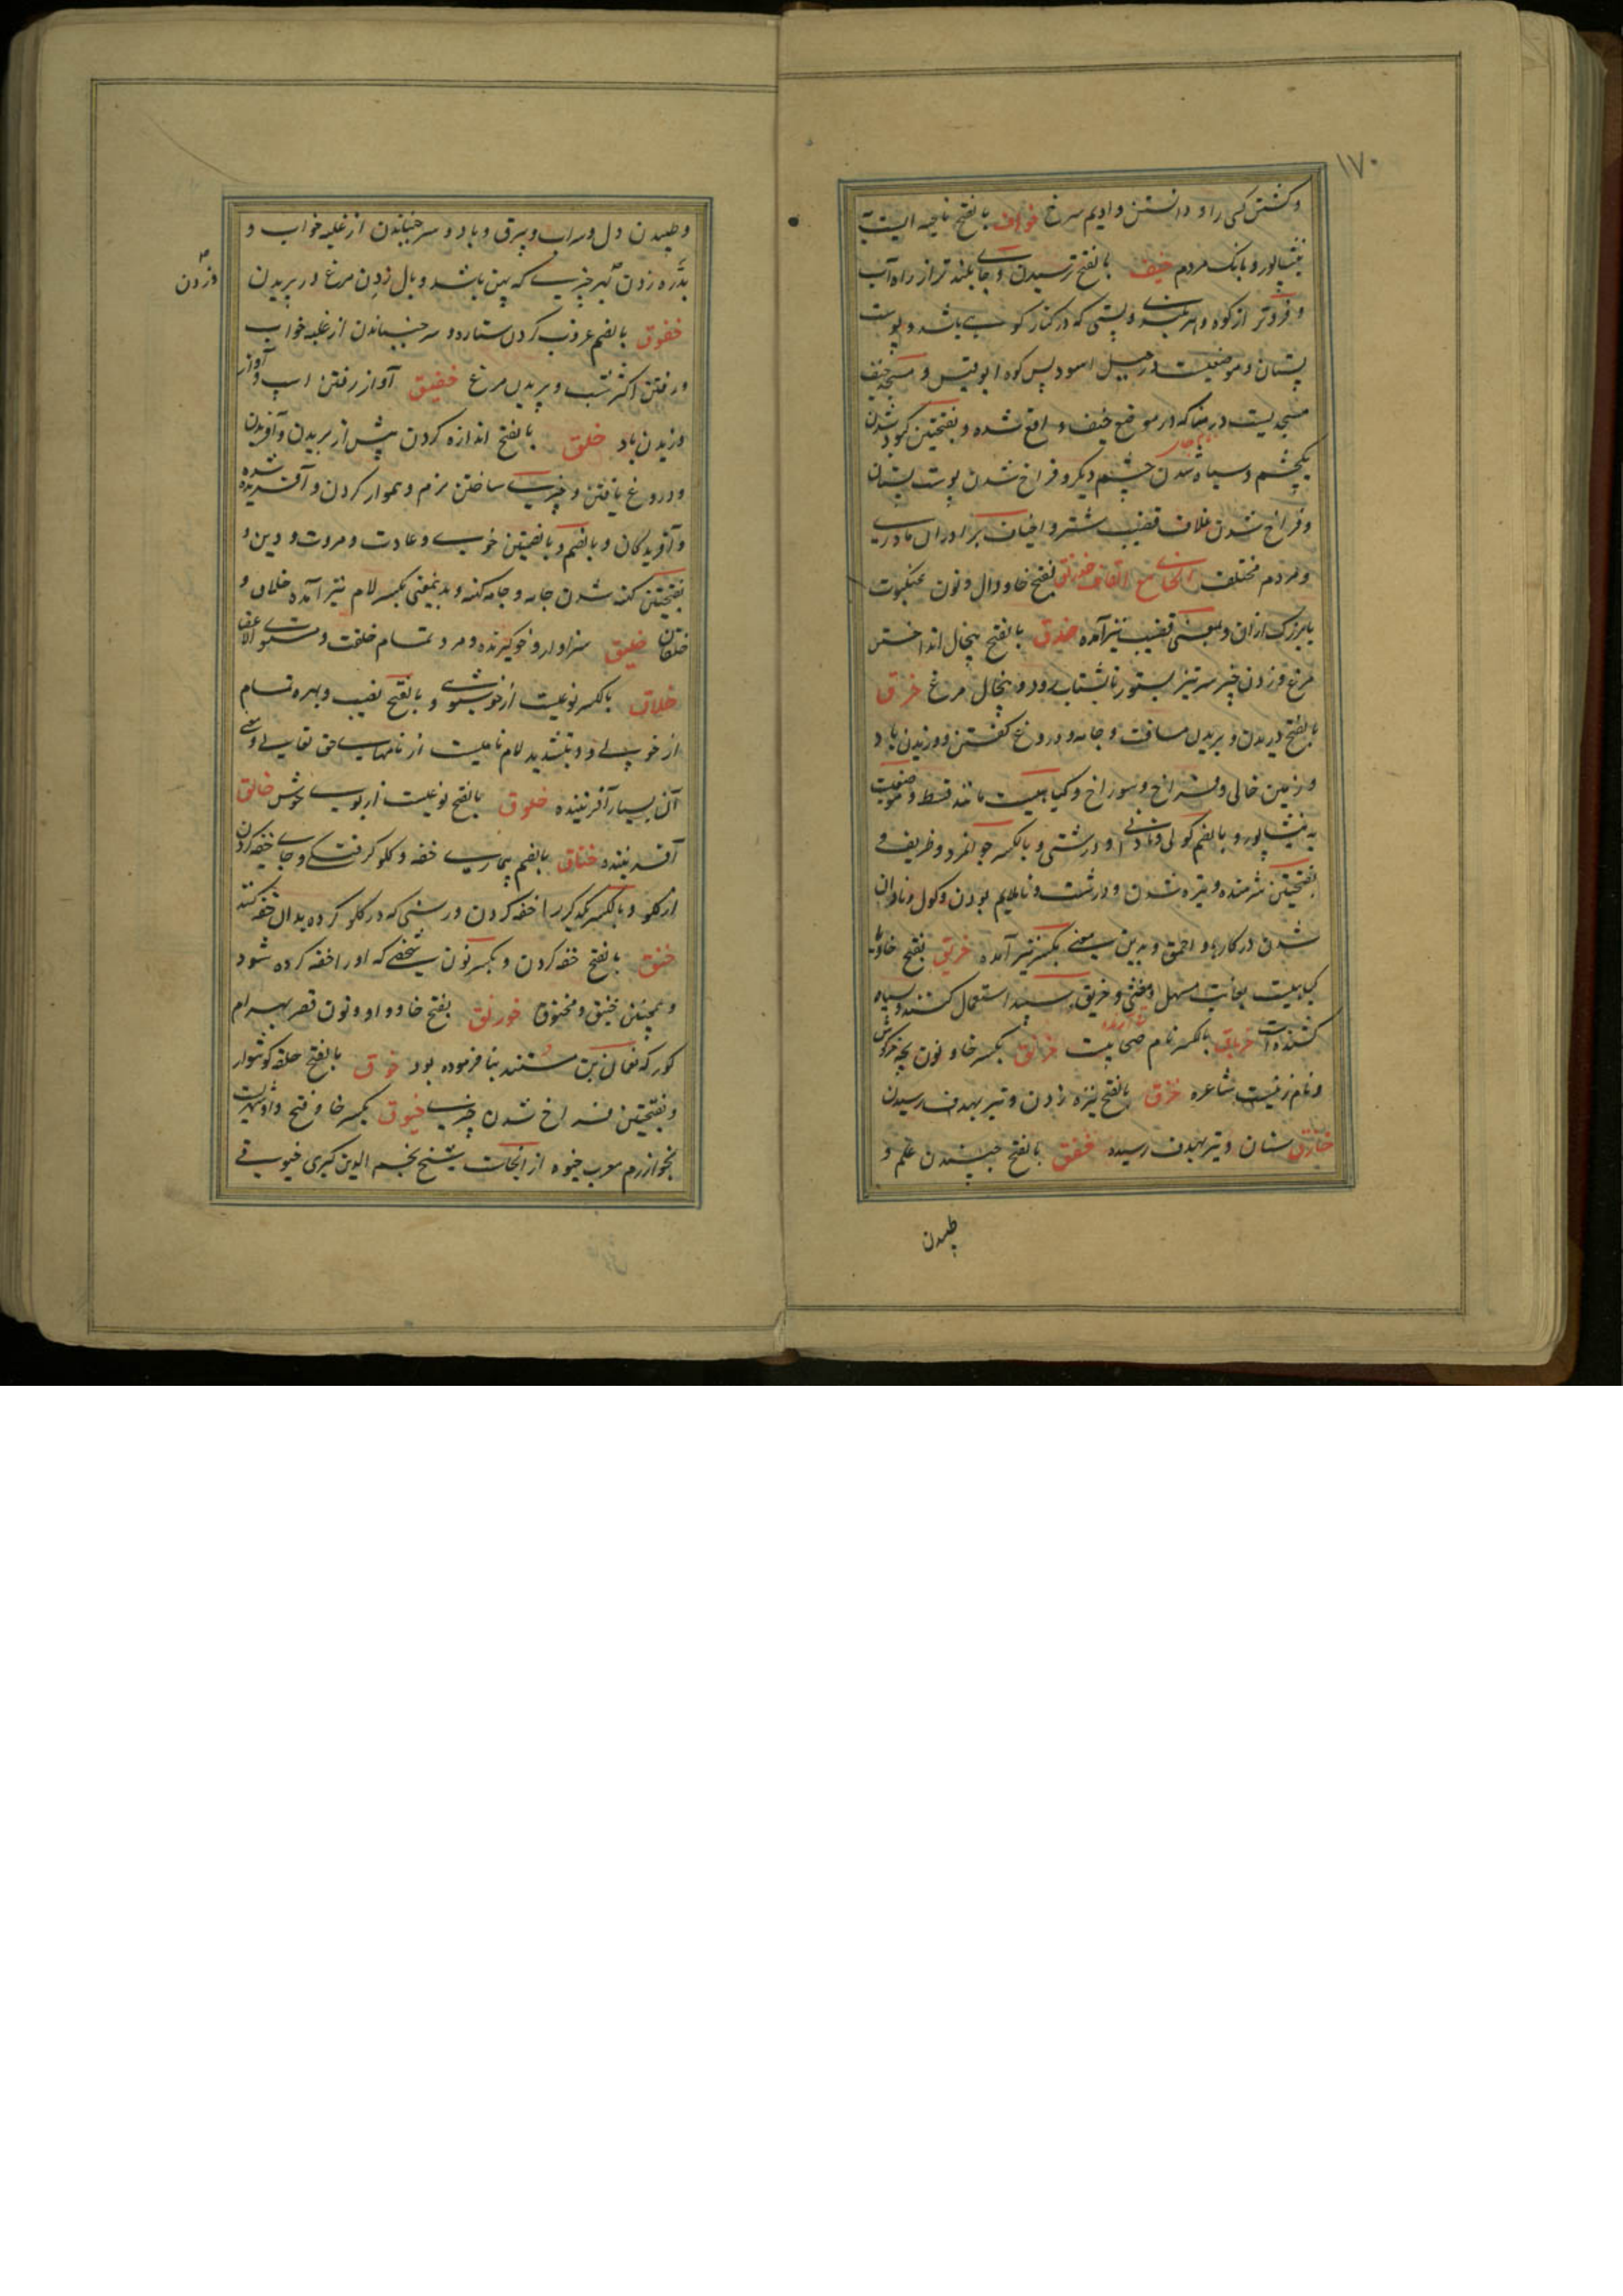 ۱۷۰
و کشتن کسی را و دانستن و ادیم سرخ خواف بالفتح ناحیه ایست
بنیشاپور و بانک مردم خیف بالفتح ترسیدن و جای بلند تر از راه آب
و فروتر از کوه و هر بلندی و پستی که در کنار کوهی باشد و پوست
پستان و موضعیست در جبل اسود پس کوه ابو قبیس و مسجد خیف
مسجدیست در منا که در موضع خیف واقع شده و بفتحتین کبود شدن
یکچشم و سیاه شدن چشم دیگر و فراخ شدن پوست پستان
و فراخ شدن غلاف قضیب شتر و اخیاف برادران مادری
و مردم مختلف الخای مع القاف خدرنق بفتح خا و دال و نون عنکبوت
یا بزرگ از آن و بمعنی قضیب نیز آمده خذق بالفتح پیخال انداختن
مرغ و زدن چیز سر تیز بستور تا بشتاب رود و پیخال مرغ خرق
بالفتح دریدن و بریدن مسافت و جامه و دروغ گفتن و وزیدن باد
و زمین خالی و فراخ و سوراخ و گیاهیست مانند قسط و موضعیست
به نیشاپور و بالضم گولی و نادانی و درشتی و بالکسر جوانمرد و ظریف و
بفتحتین شرمنده و تیره شدن و درشت و ناملایم بودن و گول و نادان
شدن در کارها و احمق و بدین معنی بکسر نیز آمده خربق بفتح خا و با
گیاهیست بغایت مسهل و مقئی و خربق سپید استعمال کنند و سیاه
کشنده است خرباق بالکسر نام صحابیست خرنق بکسر خا و نون بچه خرگوش
و نام زنیست شاعره خزق بالفتح نیزه زدن و تیر بهدف رسیدن
خازق سنان و تیر بهدف رسیده خفق بالفتح جنبیدن علم و
طپیدن
و طپیدن دل و سراب و برق و باد و سر جنبانیدن از غلبه خواب و
بدره زدن بهر چیزی که پهن باشد و بال زدن مرغ در پریدن
و زدن
خفوق بالضم غروب کردن ستاره و سر جنبانیدن از غلبه خواب
و رفتن اکثر شب و پریدن مرغ خفیق آواز رفتن اسپ و آواز
وزیدن باد خلق بالفتح اندازه کردن پیش از بریدن و آفریدن
و دروغ بافتن و چیزی ساختن نرم و هموار کردن و آفریده شده
و آفریدگان و بالضم و بالضمتین خوی و عادت و مروت و دین و
بفتحتین کهنه شدن جامه و جامه کهنه و بدینمعنی بکسر لام نیز آمده خلاق و
خلقان خلیق سزاوار و خوگیرنده و مرد تمام خلقت و مستوی الاعضا
خلاق بالکسر نوعیست از خوشبوی و بالفتح نصیب و بهره تمام
از خوبی و بتشدید لام نامیست از نامهای حق تعالی و معنی
آن بسیار آفریننده خلوق بالفتح نوعیست از بوی خوش خالق
آفریننده خناق بالضم بیماری خفه و گلو گرفتگی و جای خفه کردن
از گلو و بالکسر یکدیگر را خفه کردن و رسنی که در گلو کرده بدان خفه کنند
خنق بالفتح خفه کردن و بکسر نون شخصی که او را خفه کرده شود
و همچنین خنیق و مخنوق خورنق بفتح خا و واو و نون قصر بهرام
گور که نعمان بن منذر بنا فرموده بود خوق بالفتح حلقه گوشوار
و بفتحتین فراخ شدن چیزی خیوق بکسر خا و فتح واو شهریست
بخوارزم معرب خیوه از انجاست شیخ نجم الدین کبری خیوقی